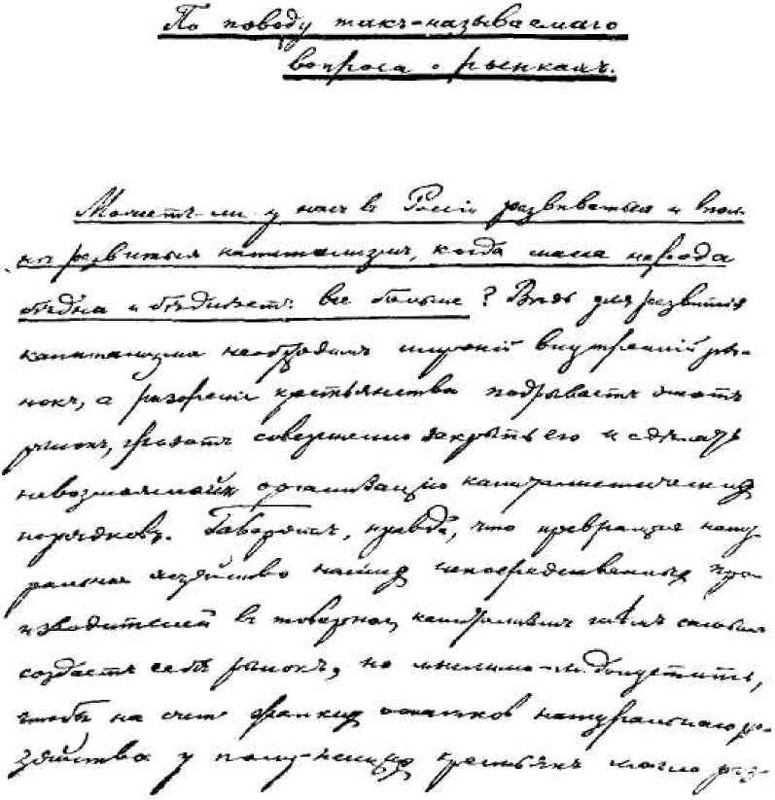 По поводу такъ-называемаго
вопроса о рынкахъ.
Можетъ-ли у насъ въ Россіи развиваться и впол-
нѣ развиться капитализмъ, когда масса народа
бѣдна и бѣднѣетъ все больше? Вѣдь для развитія
капитализма необходимъ широкій внутренній ры-
нокъ, а разореніе крестьянства подрываетъ этотъ
рынокъ, грозитъ совершенно закрыть его и сдѣлать
невозможной организацію капиталистическихъ
порядковъ. Говорятъ, правда, что превращая нату-
ральное хозяйство нашихъ непосредственныхъ про-
изводителей въ товарное, капитализмъ тѣмъ самымъ
создаетъ себѣ рынокъ, но мыслимо-ли допустить,
чтобы на счетъ жалкихъ остатковъ натуральнаго хо-
зяйства у полу-нищихъ крестьянъ могло раз-